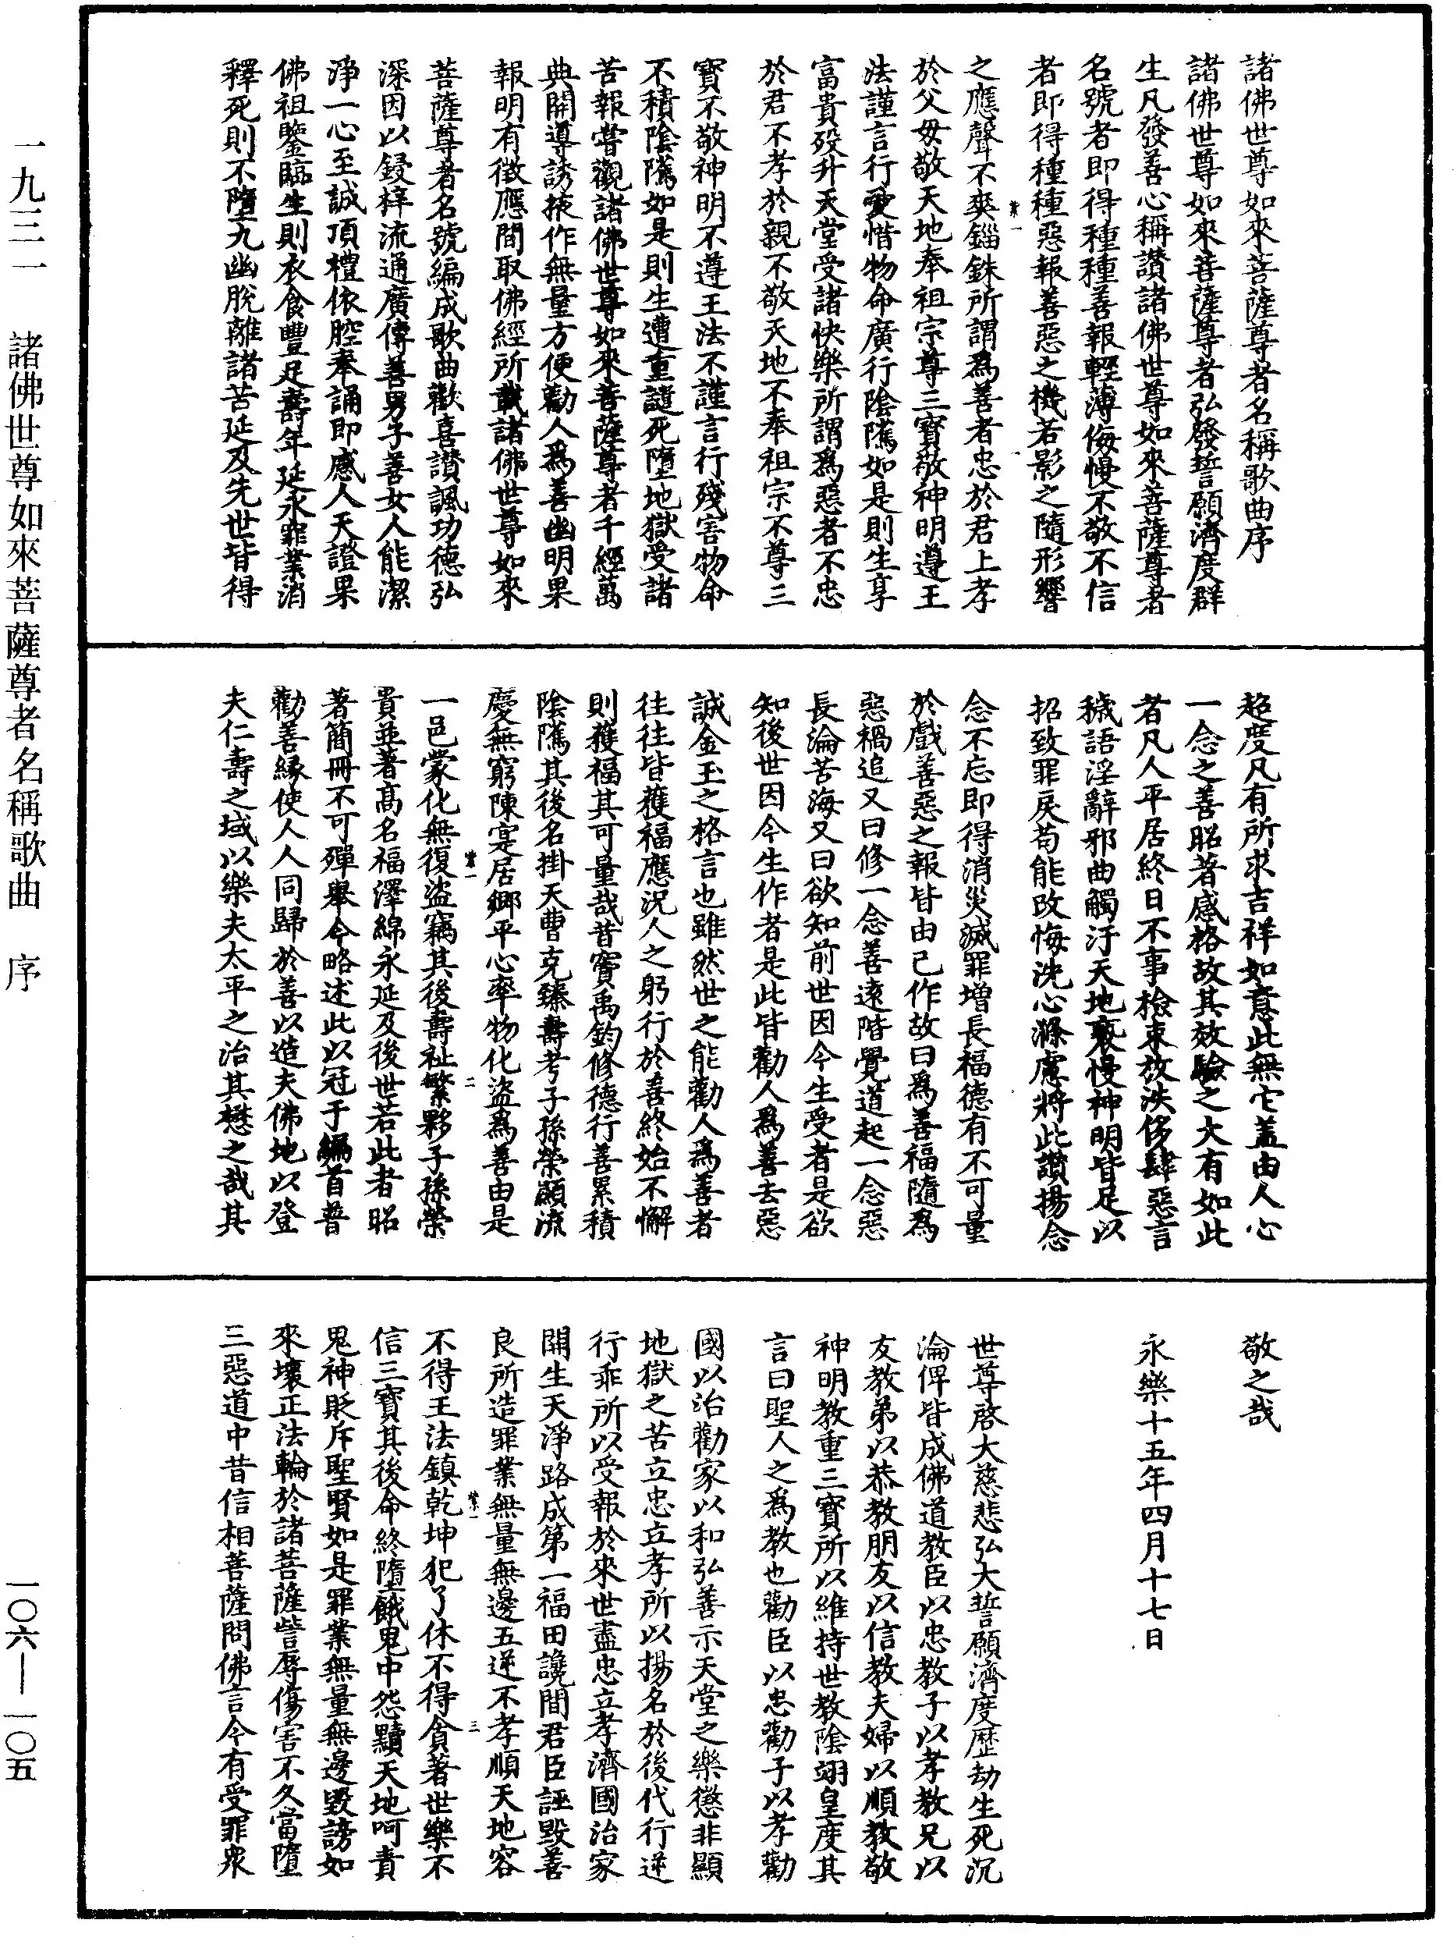 諸佛世尊如來菩薩尊者名稱歌曲序
諸佛世尊如來菩薩尊者弘發誓願濟度群
生凡發善心稱讃諸佛世尊如來菩薩尊者
名號者即得種種善報輕薄侮慢不敬不信
者即得種種惡報善惡之機若影之隨形響
之應聲不爽錙銖所謂為善者忠於君上孝
於父母敬天地奉祖宗尊三寶敬神明遵王
法謹言行愛惜物命廣行陰隲如是則生享
富貴歿升天堂受諸快樂所謂為惡者不忠
於君不孝於親不敬天地不奉祖宗不尊三
寶不敬神明不遵王法不謹言行殘害物命
不積陰隲如是則生遭重譴死墮地獄受諸
苦報甞觀諸佛世尊如來菩薩尊者千經萬
典開導誘掖作無量方便勸人為善幽明果
報明有徵應間取佛經所載諸佛世尊如來
菩薩尊者名號編成歌曲歡喜讃諷功德弘
深因以鋟梓流通廣傳善男子善女人能潔
淨一心至誠頂禮依腔奉誦即感人天證果
佛祖鑒臨生則衣食豐足壽年延永罪業消
釋死則不墮九幽脫離諸苦延及先世皆得
超度凡有所求吉祥如意此無它盖由人心
一念之善昭著感格故其效驗之大有如此
者凡人平居終日不事檢束放泆侈肆惡言
穢語淫辭邪曲觸汙天地褻慢神明皆足以
招致罪戾苟能改悔洗心滌慮將此讃揚念
念不忘即得消災滅罪增長福德有不可量
於戲善惡之報皆由己作故曰為善福隨為
惡禍追又曰修一念善遠階覺道起一念惡
長淪苦海又曰欲知前世因今生受者是欲
知後世因今生作者是此皆勸人為善去惡
誠金玉之格言也雖然世之能勸人為善者
往往皆獲福應況人之躬行於善終始不懈
則獲福其可量哉昔竇禹鈞修德行善累積
陰隲其後名掛天曹克臻壽考子孫榮顯流
慶無窮陳寔居鄉平心率物化盜為善由是
一邑蒙化無復盜竊其後壽祉繁夥子孫榮
貴並著高名福澤綿永延及後世若此者昭
著簡冊不可殫舉今略述此以冠于編首普
勸善縁使人人同歸於善以造夫佛地以登
夫仁壽之域以樂夫太平之治其懋之哉其
敬之哉
永樂十五年四月十七日
世尊啓大慈悲弘大誓願濟度歷劫生死沉
淪俾皆成佛道教臣以忠教子以孝教兄以
友教弟以恭教朋友以信教夫婦以順教敬
神明教重三寶所以維持世教陰翊皇度其
言曰聖人之為教也勸臣以忠勸子以孝勸
國以治勸家以和弘善示天堂之樂懲非顯
地獄之苦立忠立孝所以揚名於後代行逆
行乖所以受報於來世盡忠立孝濟國治家
開生天淨路成第一福田讒間君臣誣毀善
良所造罪業無量無邊五逆不孝順天地容
不得王法鎮乾坤犯了休不得貪著世樂不
信三寶其後命終墮餓鬼中怨黷天地呵責
鬼神貶斥聖賢如是罪業無量無邊毀謗如
來壞正法輪於諸菩薩訾辱傷害不久當墮
三惡道中昔信相菩薩問佛言今有受罪衆
一九三一 諸佛世尊如來菩薩尊者名稱歌曲 序
一〇六—一〇五